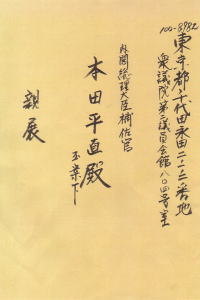 100-8982
東京都千代田永田二ー一ー二番地
衆議院第二議員会館八〇四号室
内閣総理大臣補佐官
本田平直殿
玉案下
親展